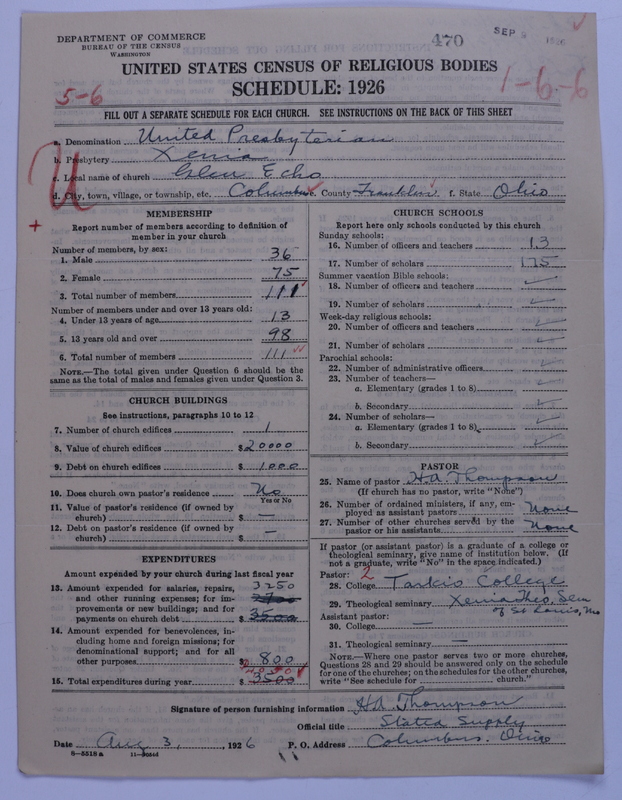 DEPARTMENT OF COMMERCE
BUREAU OF THE CENSUS
WASHINGTON
470
SEP
1926
UNITED STATES CENSUS OF RELIGIOUS BODIES
5-6
SCHEDULE: 1926
1-6-6
FILL OUT A SEPARATE SCHEDULE FOR EACH CHURCH. SEE INSTRUCTIONS ON THE BACK OF THIS SHEET
a. Denomination United Presbyterian
b. Presbytery Xenia
c. Local name of church Glen Echo
d. City, town, village, or township, etc. Columbus e. County Franklin f. State Ohio
MEMBERSHIP
Report number of members according to definition of
member in your church
Number of members, by sex:
1. Male 36
2. Female 75
3. Total number of members 111
Number of members under and over 13 years old:
4. Under 13 years of age 13
5. 13 years old and over 98
6. Total number of members 111
NOTE.—The total given under Question 6 should be
same as the total of males and females given under Question 3.
CHURCH BUILDINGS
See instructions, paragraphs 10 to 12
7. Number of church edifices 1
8. Value of church edifices $20000
9. Debt on church edifices $1000
10. Does church own pastor's residence No
Yes or No
11. Value of pastor's residence (if owned by
church) $ —
12. Debt on pastor's residence (if owned by
church) $ —
EXPENDITURES
Amount expended by your church during last fiscal year
13. Amount expended for salaries, repairs, 3250
and other running expenses; for im-
provements or new buildings; and for
payments on church debt $ 3500
14. Amount expended for benevolences, in-
cluding home and foreign missions; for
denominational support; and for all
other purposes $ 800
15. Total expenditures during year $ 3500
CHURCH SCHOOLS
Report here only schools conducted by this church
Sunday schools:
16. Number of officers and teachers 13
17. Number of scholars 175
Summer vacation Bible schools:
18. Number of officers and teachers
19. Number of scholars
Week-day religious schools:
20. Number of officers and teachers
21. Number of scholars
Parochial schools:
22. Number of administrative officers
23. Number of teachers—
a. Elementary (grades 1 to 8)
b. Secondary
24. Number of scholars—
a. Elementary (grades 1 to 8)
b. Secondary
PASTOR
25. Name of pastor H.A. Thompson
(If church has no pastor, write "None")
26. Number of ordained ministers, if any, em-
ployed as assistant pastors None
27. Number of other churches served by the
pastor or his assistants None
If pastor (or assistant pastor) is a graduate of a college or
theological seminary, give name of institution below. (If
not a graduate, write "No" in the space indicated.)
Pastor: 2
28. College Tarkio College
29. Theological seminary Xenia Theo. Sem
of St Louis, Mo
Assistant pastor:
30. College —
31. Theological seminary —
NOTE.—Where one pastor serves two or more churches,
Questions 28 and 29 should be answered only on the schedule
for one of the churches; on the schedules for the other churches,
write "See schedule for church."
Signature of person furnishing information H.A. Thompson
Official title Stated Supply
Date Aug 3, 1926 P. O. Address Columbus, Ohio
8-5518 a